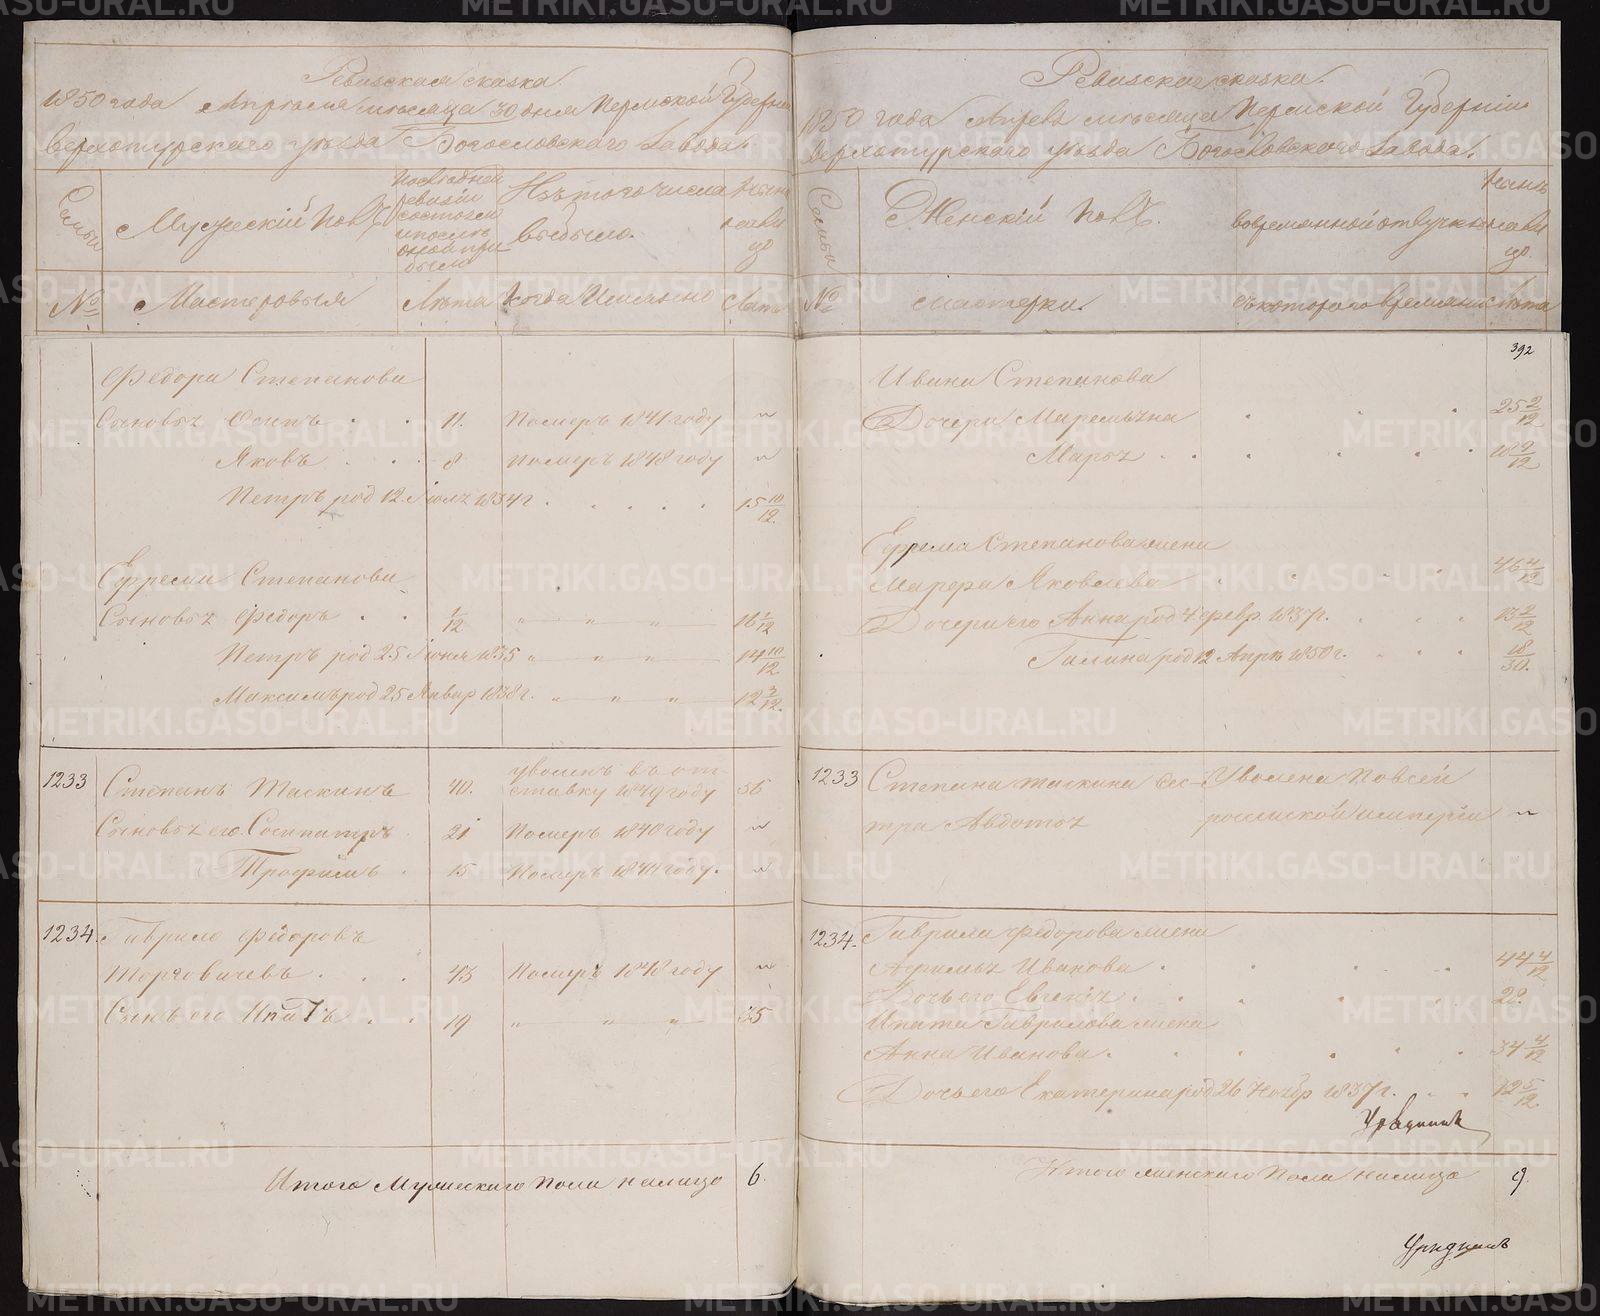 Ревизская сказка.
1850 года Апреля месяца 30 дня Пермской Губерніи
Верхотурскаго уезда Богословскаго Завода.
Семьи
Мужескій полъ
По последней ревизіи состояло и после оной прибыло
Изъ того числа выбыло.
Ныне на лицо
№
Мастеровыя
Лѣта
Когда Именно
Лѣта
Федора Степанова
Сыновья Осипъ 11. Померъ 1841 году "
Яковъ 8 Померъ 1848 году "
Петръ род 12 Іюля 1834 г. 15 10/12
Ефрема Степанова
Сыновья Федоръ 1/12 " " " 16 1/12
Петръ род 25 Іюня 1835 " " " 14 10/12
Максимъ род 25 Январ 1838 г. " " " 12 3/12
1233 Степанъ Таскинъ 40. уволенъ въ отставку 1849 году 56
Сыновья его Сосипатръ 21 Померъ 1840 году "
Трофимъ 15 Померъ 1844 году. "
1234. Гаврило Федоровъ
Торговичевъ 43 Померъ 1848 году "
Сынъ его Ипатъ 19 " " " 35
Итого Мужескаго пола налицо 6.
Ревизская сказка.
1850 года Апрель месяца Пермской Губерніи
Верхотурскаго уезда Богословскаго Завода.
Семьи
Женскій полъ.
Во временной отлучке
Ныне на лицо
№
мастерки.
Съ котораго времяни
Лѣта
392
Ивана Степанова
Дочери Маремьяна 25 2/12
Марья 18 9/12
Ефрема Степанова жена
Марфа Яковлева 46 4/12
Дочери его Анна род 4 февр. 1837 г. 13 2/12
Галина род 12 Апрѣ 1850 г. 18/30.
1233 Степана Таскина сес- Уволена по всей
тра Авдотья россійской имперіи "
1234. Гаврила Федорова жена
Афимья Иванова 44 4/12
Дочь его Евгенія 20.
Ипата Гаврилова жена
Анна Иванова. 34 4/12
Дочь его Екатерина род 26 Ноябр 1837 г. 12 5/12
Итого женскаго пола налицо 9.
METRIKI.GASO-URAL.RU